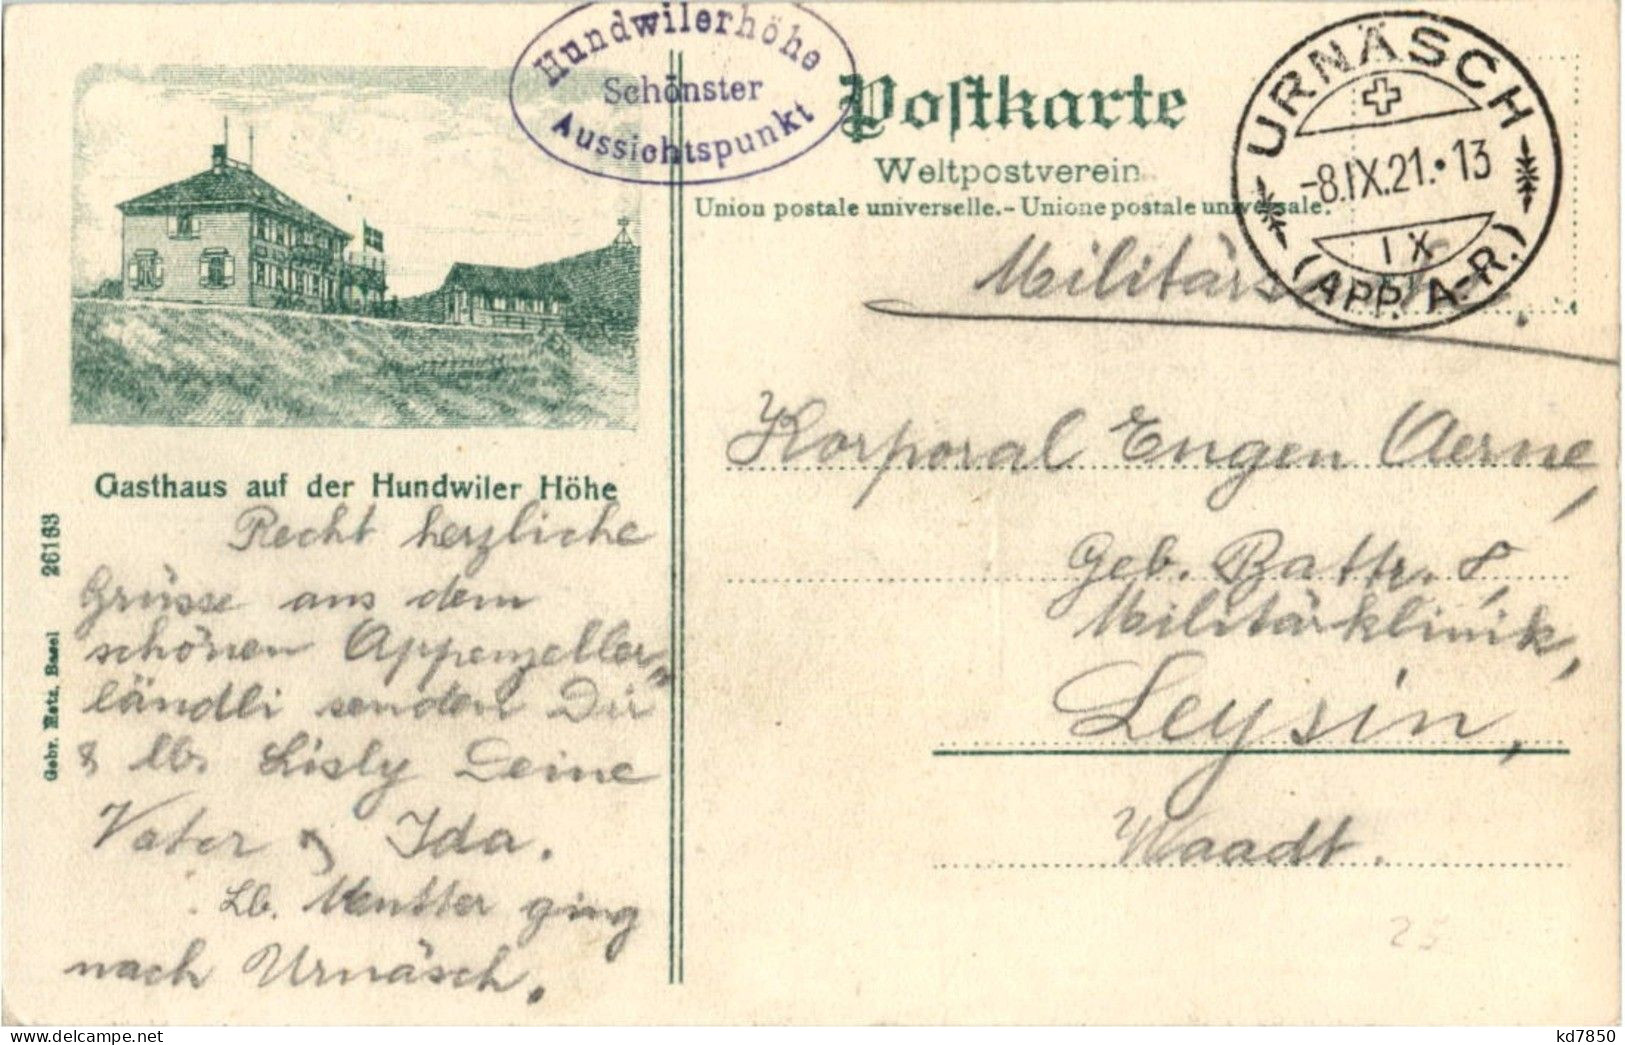 Hundwilerhöhe
Schönster
Aussichtspunkt
Postkarte
Weltpostverein
Union postale universelle. - Unione postale universale.
URNÄSCH
-8.IX.21.•13
IX
(APP. A.-R.)
Gasthaus auf der Hundwiler Höhe
Gebr. Metz, Basel 26163
Recht herzliche
Grüsse aus dem
schönen Appenzeller-
ländli senden Dir
& lb. Lisly Deine
Vater & Ida.
Lb. Mutter ging
nach Urnäsch.
Korporal Eugen Aerne,
Geb. Battr. 8,
Militärklinik,
Leysin,
Waadt.
25
Delcampe.net
kd7850